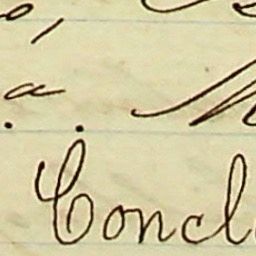 . a. M
Concl